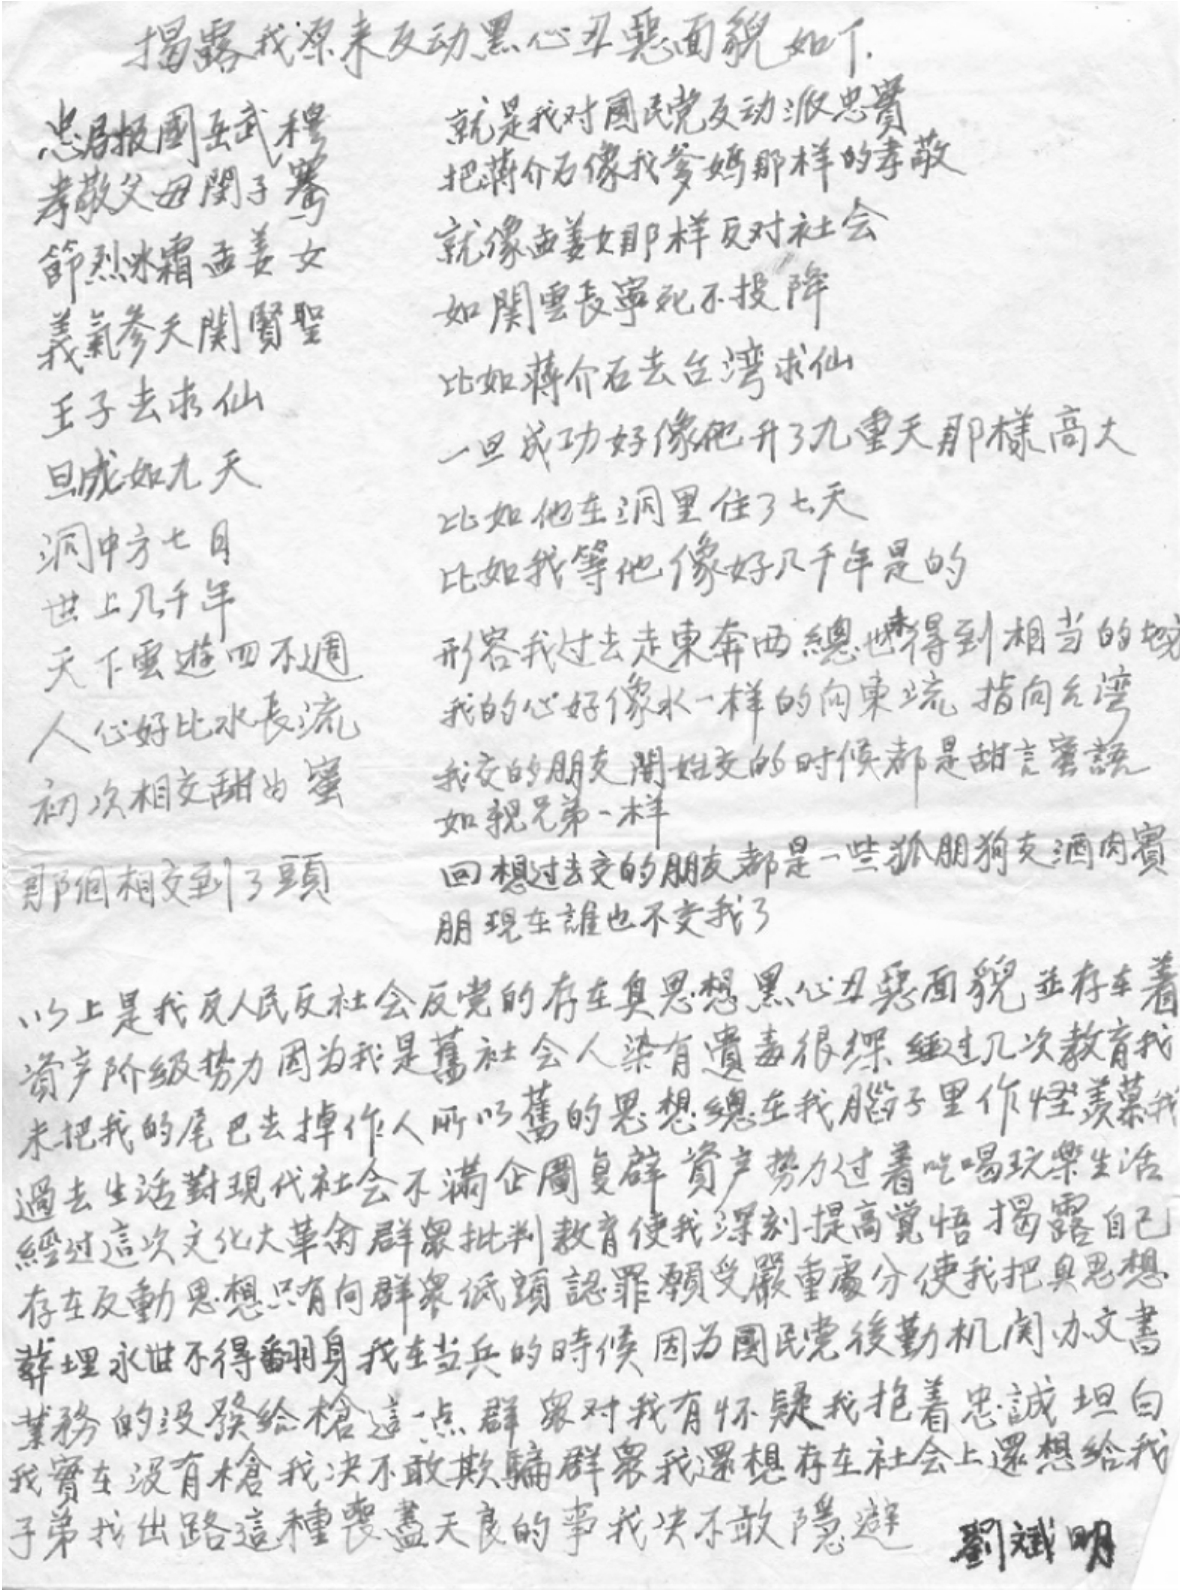 揭露我原来反动黑心丑惡面貌如下.
忠君报國岳武穆
就是我对國民党反动派忠實
孝敬父母閔子騫
把蒋介石像我爹媽那样的孝敬
節烈冰霜孟姜女
就像孟姜女那样反对社会
義氣参天関賢聖
如関雲長寧死不投降
王子去求仙
比如蒋介石去台湾求仙
旦成如九天
一旦成功好像他升了九重天那樣高大
洞中方七日
比如他在洞里住了七天
世上几千年
比如我等他像好几千年是的
天下雲遊四不週
形容我过去走東奔西總也未得到相当的
人心好比水長流
我的心好像水一样的向東流指向台湾
初次相交甜如蜜
我交的朋友開始交的时候都是甜言蜜語
如親兄弟一样
那個相交到了頭
回想过去交的朋友都是一些狐朋狗友酒肉賓
朋現在誰也不交我了
以上是我反人民反社会反党的存在臭思想黑心丑惡面貌並存在着
資产阶级势力因为我是舊社会人染有遺毒很深經过几次教育我
未把我的尾巴去掉作人所以舊的思想總在我腦子里作怪羡慕我
過去生活對現代社会不滿企圖复辟資产势力过着吃喝玩樂生活
經过這次文化大革命群衆批判教育使我深刻提高覚悟揭露自己
存在反動思想只有向群衆低頭認罪願受嚴重處分使我把臭思想
葬埋永世不得翻身我在当兵的時候因为國民党後勤机関办文書
業務的没發給槍這一点群衆对我有怀疑我抱着忠誠坦白
我實在没有槍我决不敢欺騙群衆我還想存在社会上還想給我
子弟找出路這種喪盡天良的事我决不敢隱避
劉斌明